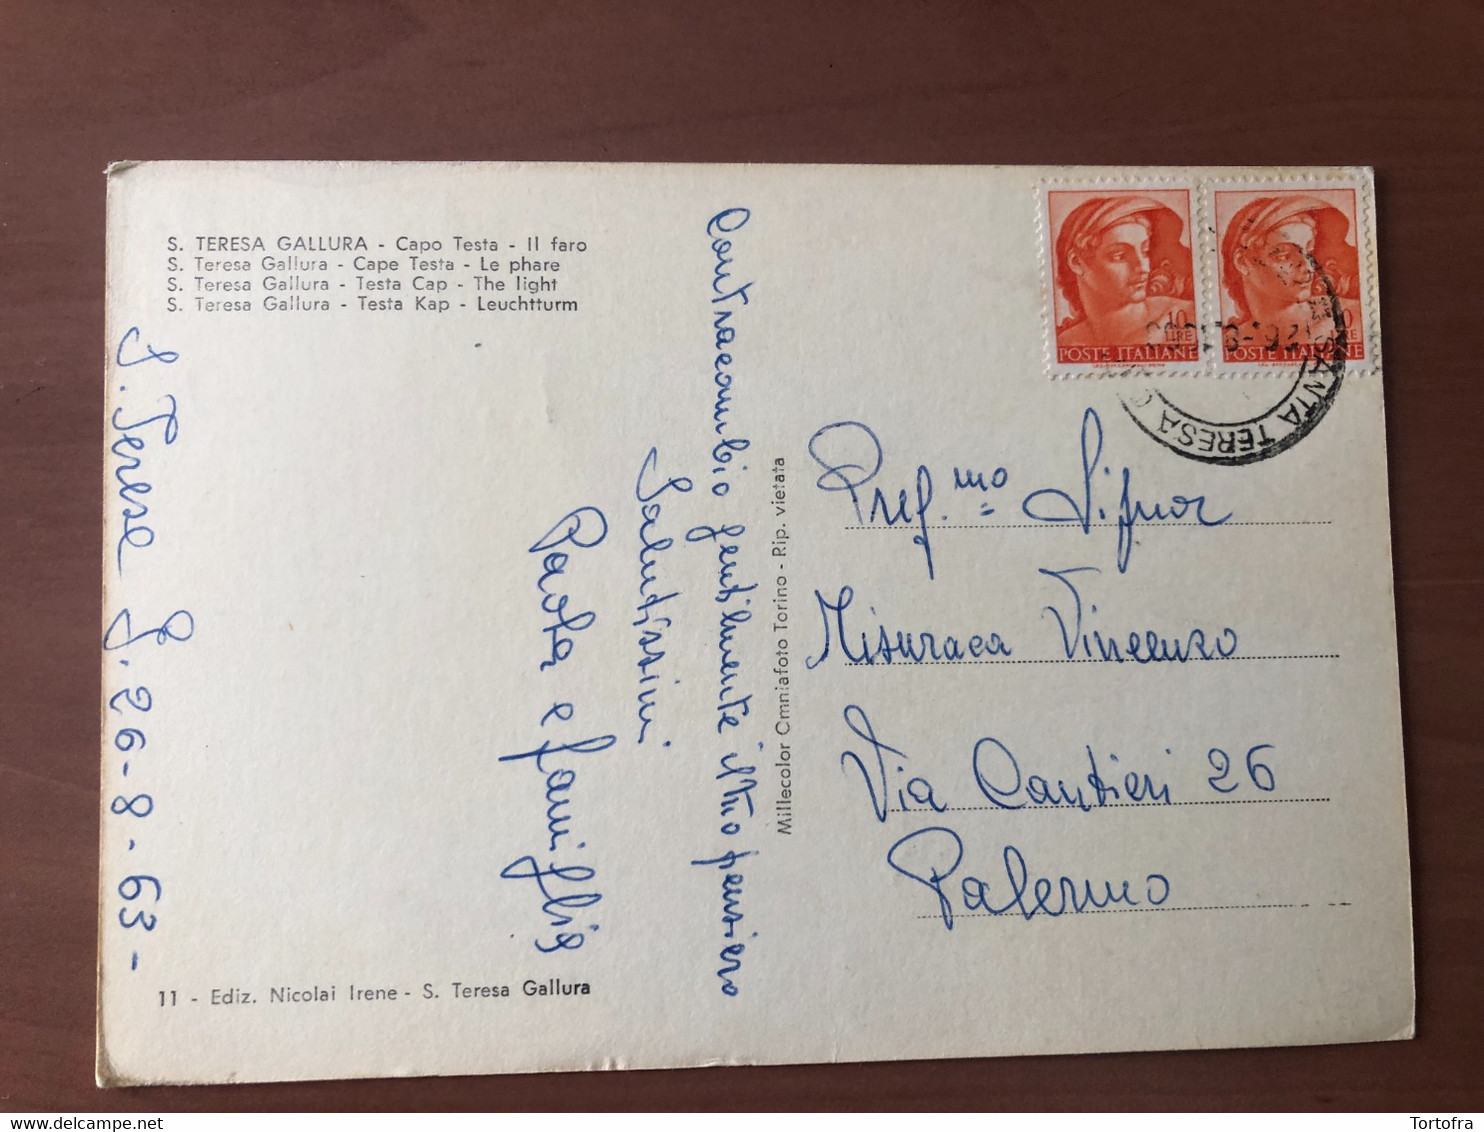 S. TERESA GALLURA - Capo Testa - Il faro
S. Teresa Gallura - Cape Testa - Le phare
S. Teresa Gallura - Testa Cap - The light
S. Teresa Gallura - Testa Kap - Leuchtturm
S. Terese G. 26-8-63-
Contraccambio gentilmente il tuo pensiero
Salutissini
Paola e famiglia
11 - Ediz. Nicolai Irene - S. Teresa Gallura
Millecolor Omniafoto Torino - Rip. vietata
10
LIRE
POSTE ITALIANE
10
LIRE
POSTE ITALIANE
SANTA TERESA
Pref.mo Signor
Misuraca Vincenzo
Via Cantieri 26
Palermo
Tortofra